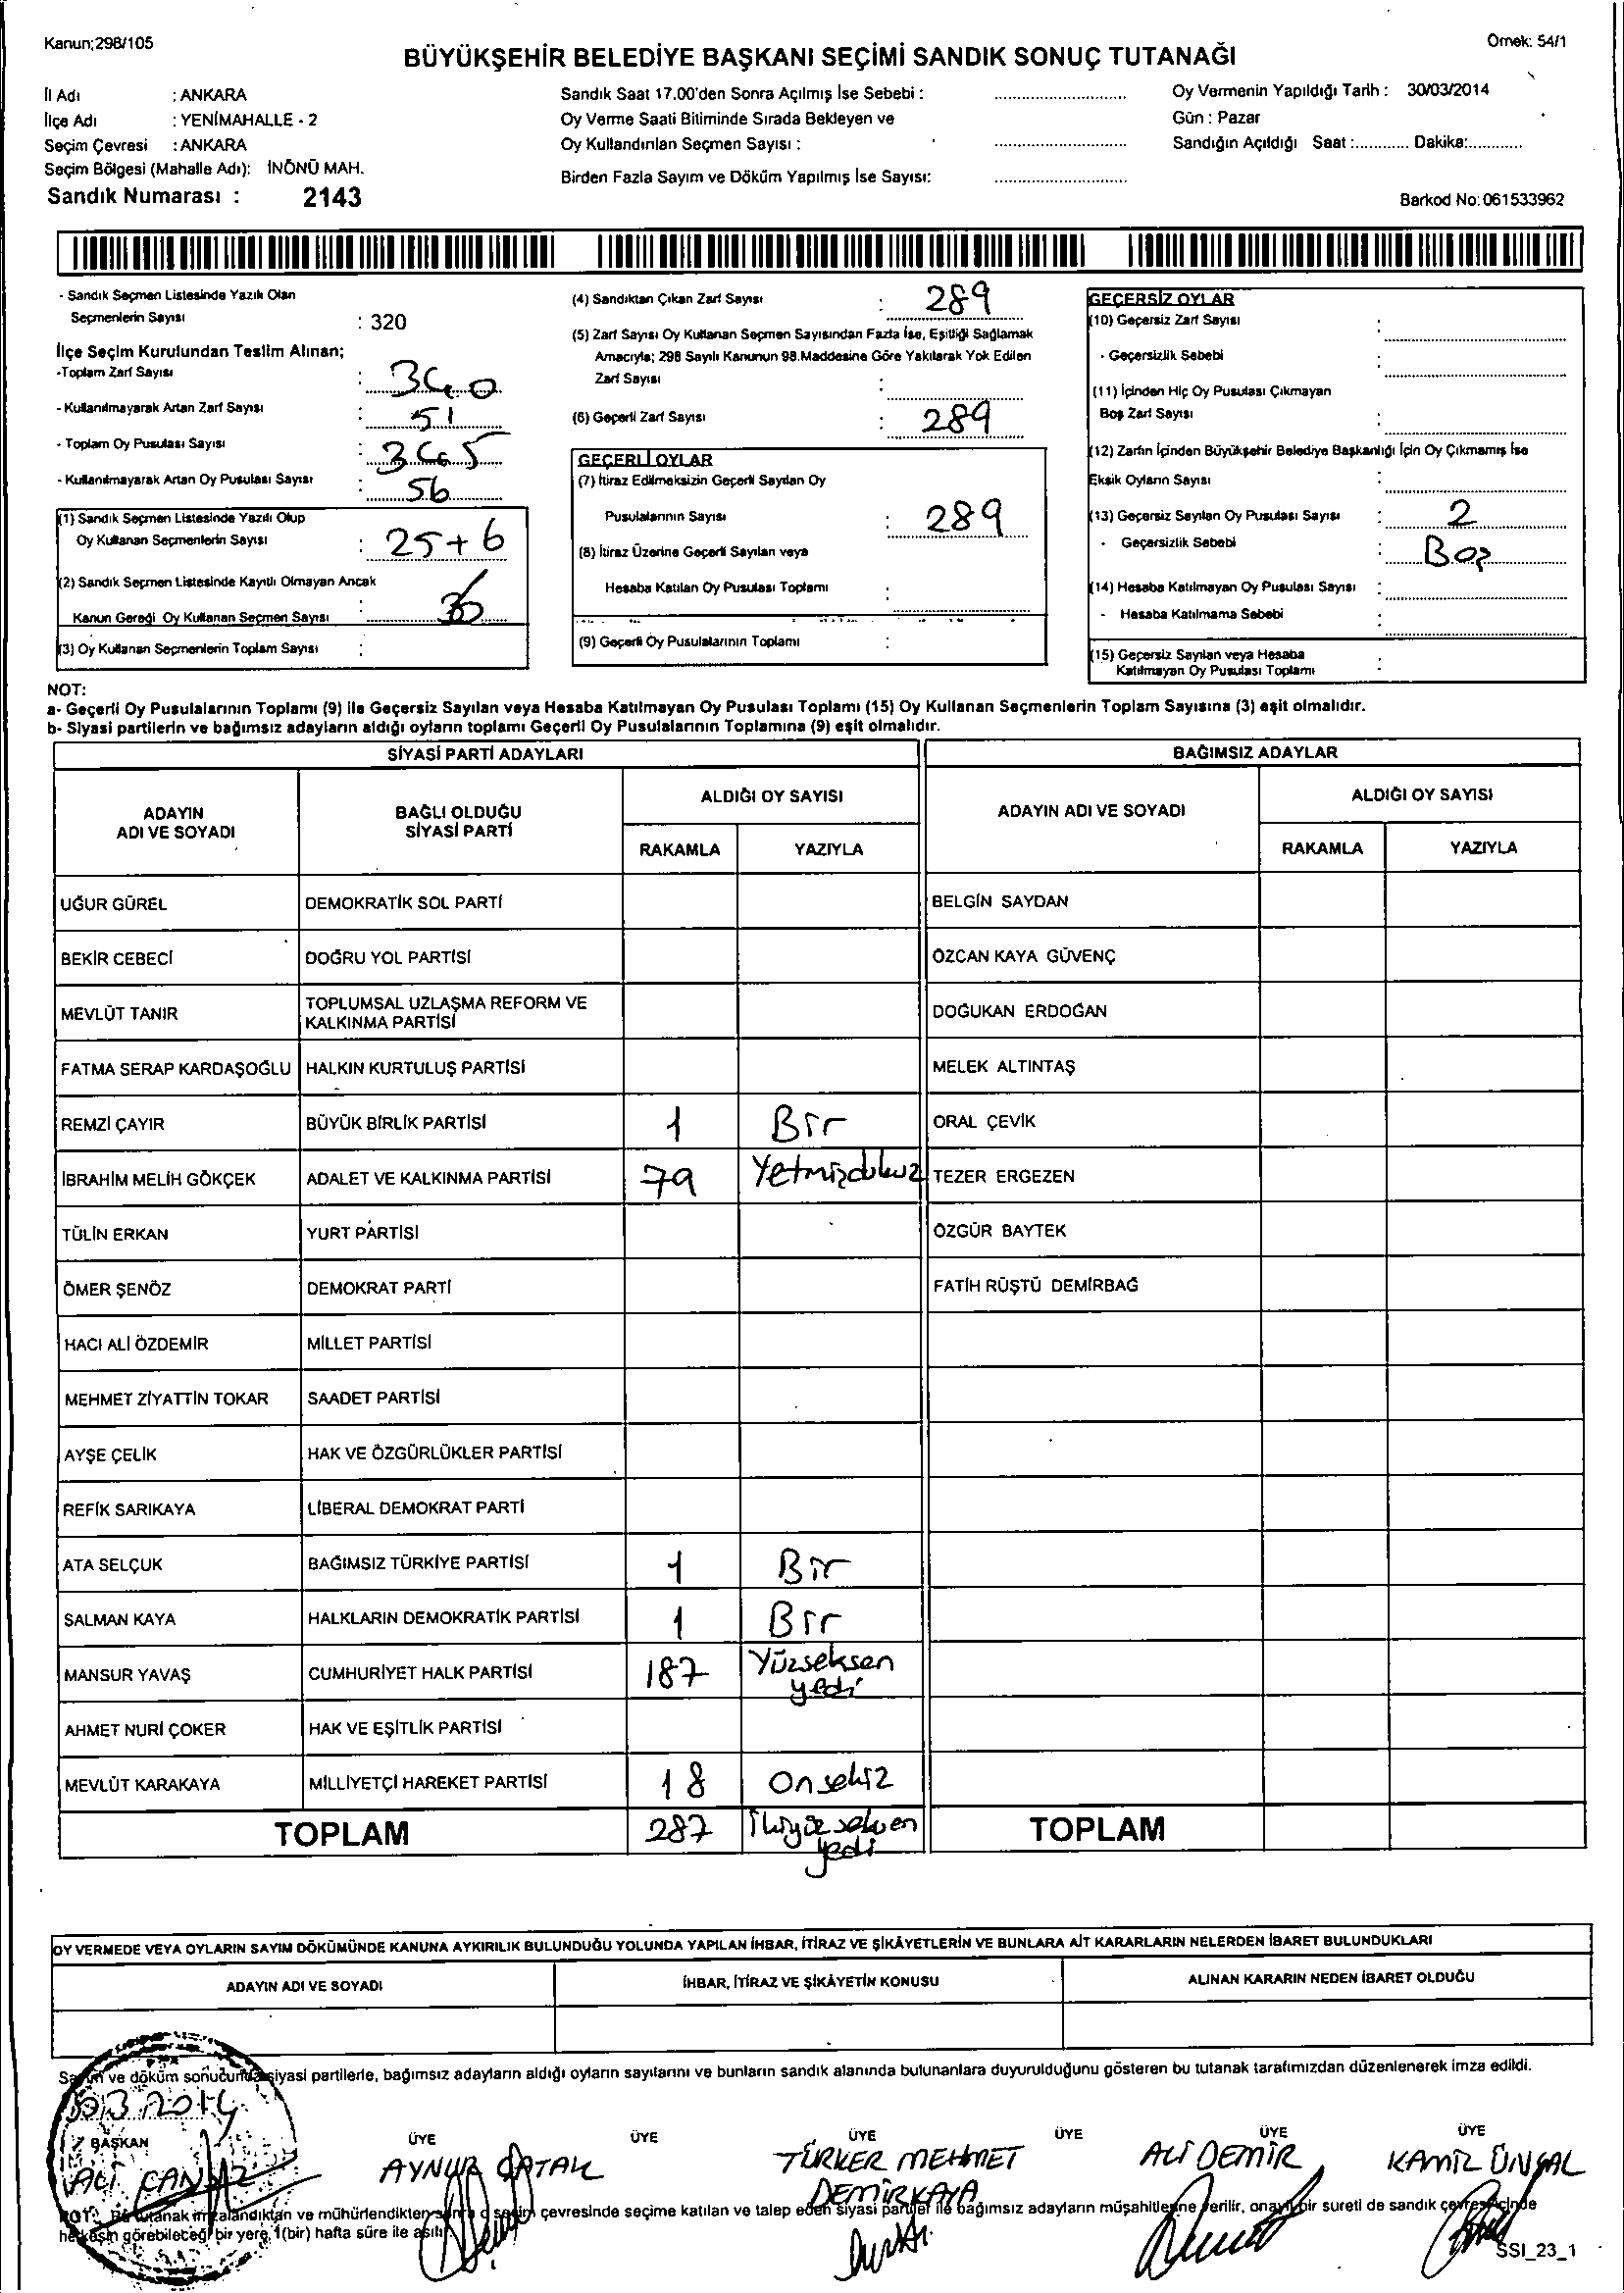 Kanun;298/105
Örnek: 54/1
BÜYÜKŞEHİR BELEDİYE BAŞKANI SEÇİMİ SANDIK SONUÇ TUTANAĞI
İl Adı : ANKARA
İlçe Adı : YENİMAHALLE - 2
Seçim Çevresi : ANKARA
Seçim Bölgesi (Mahalle Adı): İNÖNÜ MAH.
Sandık Numarası : 2143
Sandık Saat 17.00'den Sonra Açılmış İse Sebebi :
Oy Verme Saati Bitiminde Sırada Bekleyen ve
Oy Kullandırılan Seçmen Sayısı :
Birden Fazla Sayım ve Döküm Yapılmış İse Sayısı:
Oy Vermenin Yapıldığı Tarih : 30/03/2014
Gün : Pazar
Sandığın Açıldığı Saat :............ Dakika:............
Barkod No: 061533962
- Sandık Seçmen Listesinde Yazılı Olan
Seçmenlerin Sayısı : 320
İlçe Seçim Kurulundan Teslim Alınan;
-Toplam Zarf Sayısı : 340
- Kullanılmayarak Artan Zarf Sayısı : 51
- Toplam Oy Pusulası Sayısı : 345
- Kullanılmayarak Artan Oy Pusulası Sayısı : 56
(1) Sandık Seçmen Listesinde Yazılı Olup
Oy Kullanan Seçmenlerin Sayısı : 25+6
(2) Sandık Seçmen Listesinde Kayıtlı Olmayan Ancak
Kanun Gereği Oy Kullanan Seçmen Sayısı :
(3) Oy Kullanan Seçmenlerin Toplam Sayısı :
(4) Sandıktan Çıkan Zarf Sayısı : 289
(5) Zarf Sayısı Oy Kullanan Seçmen Sayısından Fazla İse, Eşitliği Sağlamak
Amacıyla; 298 Sayılı Kanunun 98.Maddesine Göre Yakılarak Yok Edilen
Zarf Sayısı :
(6) Geçerli Zarf Sayısı : 289
GEÇERLİ OYLAR
(7) İtiraz Edilmeksizin Geçerli Sayılan Oy
Pusulalarının Sayısı : 289
(8) İtiraz Üzerine Geçerli Sayılan veya
Hesaba Katılan Oy Pusulası Toplamı :
(9) Geçerli Oy Pusulalarının Toplamı :
GEÇERSİZ OYLAR
(10) Geçersiz Zarf Sayısı :
- Geçersizlik Sebebi :
(11) İçinden Hiç Oy Pusulası Çıkmayan
Boş Zarf Sayısı :
(12) Zarfın İçinden Büyükşehir Belediye Başkanlığı İçin Oy Çıkmamış İse
Eksik Oyların Sayısı :
(13) Geçersiz Sayılan Oy Pusulası Sayısı : 2
- Geçersizlik Sebebi : Boş
(14) Hesaba Katılmayan Oy Pusulası Sayısı :
- Hesaba Katılmama Sebebi :
(15) Geçersiz Sayılan veya Hesaba
Katılmayan Oy Pusulası Toplamı :
NOT:
a- Geçerli Oy Pusulalarının Toplamı (9) ile Geçersiz Sayılan veya Hesaba Katılmayan Oy Pusulası Toplamı (15) Oy Kullanan Seçmenlerin Toplam Sayısına (3) eşit olmalıdır.
b- Siyasi partilerin ve bağımsız adayların aldığı oyların toplamı Geçerli Oy Pusulalarının Toplamına (9) eşit olmalıdır.
SİYASİ PARTİ ADAYLARI
BAĞIMSIZ ADAYLAR
ADAYIN
ADI VE SOYADI
BAĞLI OLDUĞU
SİYASİ PARTİ
ALDIĞI OY SAYISI
RAKAMLA YAZIYLA
ADAYIN ADI VE SOYADI
ALDIĞI OY SAYISI
RAKAMLA YAZIYLA
UĞUR GÜREL DEMOKRATİK SOL PARTİ BELGİN SAYDAN
BEKİR CEBECİ DOĞRU YOL PARTİSİ ÖZCAN KAYA GÜVENÇ
MEVLÜT TANIR TOPLUMSAL UZLAŞMA REFORM VE
KALKINMA PARTİSİ DOĞUKAN ERDOĞAN
FATMA SERAP KARDAŞOĞLU HALKIN KURTULUŞ PARTİSİ MELEK ALTINTAŞ
REMZİ ÇAYIR BÜYÜK BİRLİK PARTİSİ 1 Bir ORAL ÇEVİK
İBRAHİM MELİH GÖKÇEK ADALET VE KALKINMA PARTİSİ 79 Yetmişdokuz TEZER ERGEZEN
TÜLİN ERKAN YURT PARTİSİ ÖZGÜR BAYTEK
ÖMER ŞENÖZ DEMOKRAT PARTİ FATİH RÜŞTÜ DEMİRBAĞ
HACI ALİ ÖZDEMİR MİLLET PARTİSİ
MEHMET ZİYATTİN TOKAR SAADET PARTİSİ
AYŞE ÇELİK HAK VE ÖZGÜRLÜKLER PARTİSİ
REFİK SARIKAYA LİBERAL DEMOKRAT PARTİ
ATA SELÇUK BAĞIMSIZ TÜRKİYE PARTİSİ 1 Bir
SALMAN KAYA HALKLARIN DEMOKRATİK PARTİSİ 1 Bir
MANSUR YAVAŞ CUMHURİYET HALK PARTİSİ 187 Yüzseksen
yedi
AHMET NURİ ÇOKER HAK VE EŞİTLİK PARTİSİ
MEVLÜT KARAKAYA MİLLİYETÇİ HAREKET PARTİSİ 18 Onsekiz
TOPLAM 287 İkiyüzseksen
yedi
TOPLAM
OY VERMEDE VEYA OYLARIN SAYIM DÖKÜMÜNDE KANUNA AYKIRILIK BULUNDUĞU YOLUNDA YAPILAN İHBAR, İTİRAZ VE ŞİKÂYETLERİN VE BUNLARA AİT KARARLARIN NELERDEN İBARET BULUNDUKLARI
ADAYIN ADI VE SOYADI İHBAR, İTİRAZ VE ŞİKÂYETİN KONUSU ALINAN KARARIN NEDEN İBARET OLDUĞU
Sayım ve döküm sonucunda siyasi partilerle, bağımsız adayların aldığı oyların sayılarını ve bunların sandık alanında bulunanlara duyurulduğunu gösteren bu tutanak tarafımızdan düzenlenerek imza edildi.
BAŞKAN ÜYE ÜYE ÜYE ÜYE ÜYE ÜYE
ALİ AYNUR ÇATAK TÜRKER MEHMET ALİ DEMİR KAMİL ÜNSAL
DEMİRKAYA
NOT: Bu tutanak imzalandıktan ve mühürlendikten sonra o seçim çevresinde seçime katılan ve talep eden siyasi partiler ile bağımsız adayların müşahitlerine verilir, onaylı bir sureti de sandık çevresi içinde
herkesin görebileceği bir yere 1(bir) hafta süre ile asılır.
SSI_23_1